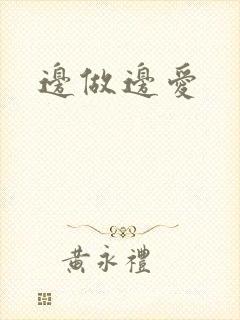 邊做邊愛
黃永禮